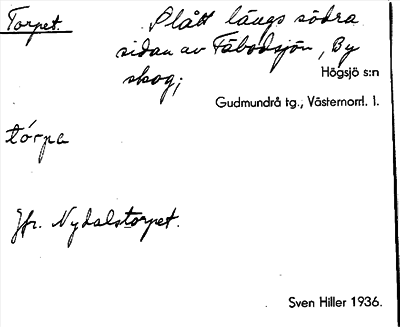 Torpet. Slått längs södra
sidan av Fäbodsjön, By
skog;
Högsjö s:n
Gudmundrå tg., Västernorrl. l.
tórpa
Jfr. Nydalstorpet.
Sven Hiller 1936.